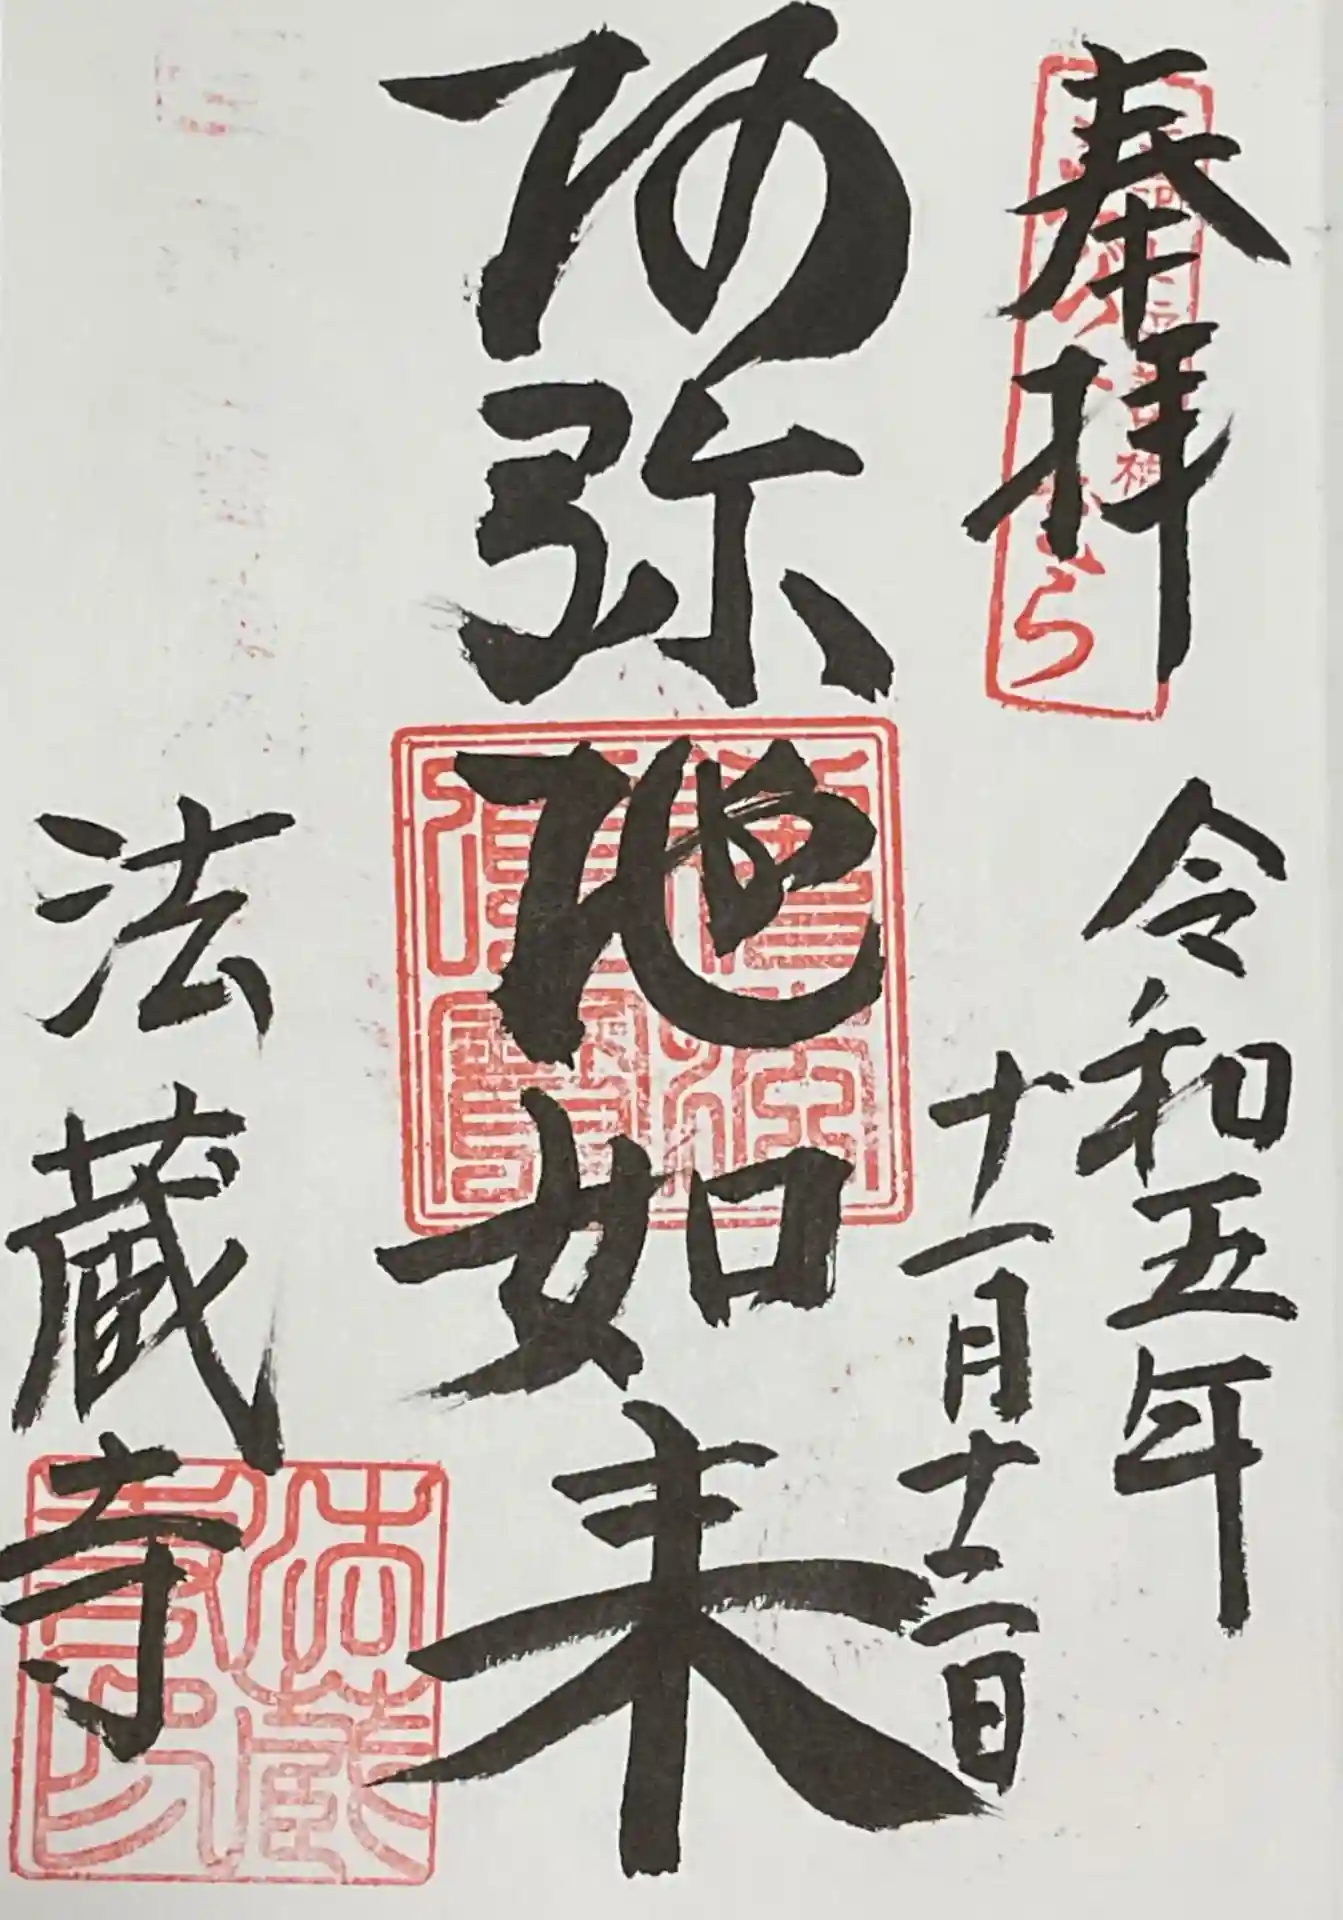 奉拝
令和五年
十一月十二日
阿弥陀如来
佛法僧寶
法蔵寺
法蔵寺印